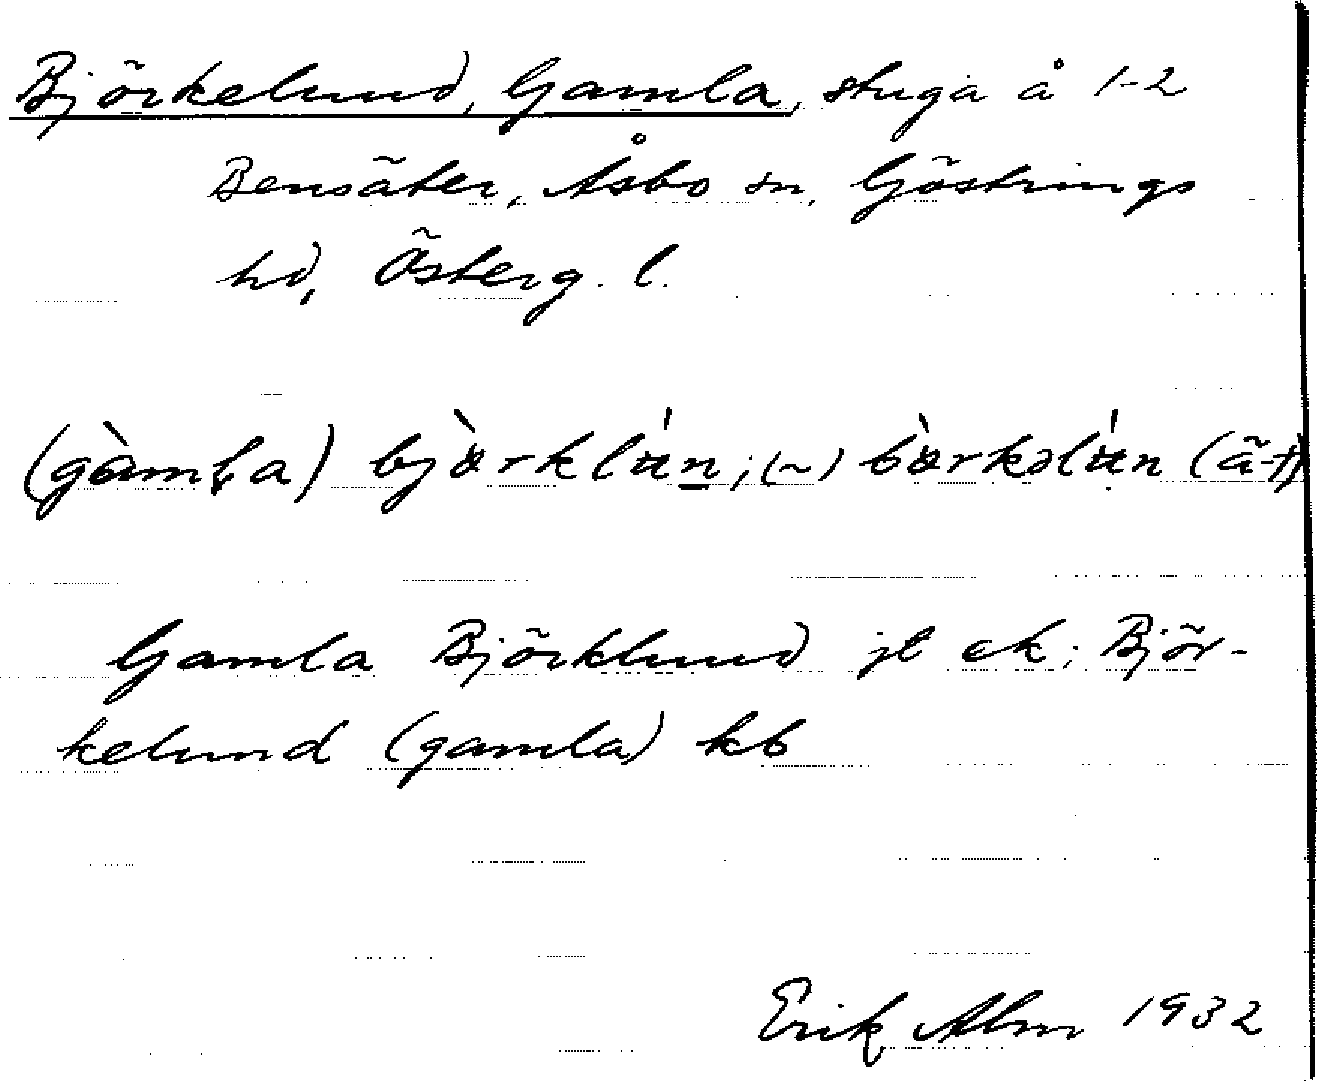 Björkelund, Gamla, stuga å 1-2
Bensäter, Åsbo sn, Göstrings
hd, Österg. l.
(gàmla) bjö̀rklún; (~) bö̀rkəlún (ä-t)
Gamla Björklund jl ek; Björ-
kelund (gamla) kb
Erik Alm 1932